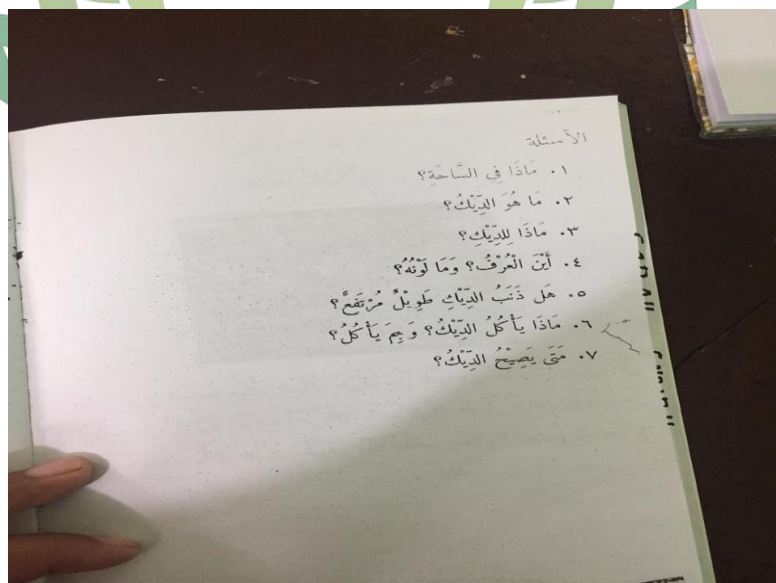 الأسئلة
١. مَاذَا فِي السَّاحَةِ؟
٢. مَا هُوَ الدِّيْكُ؟
٣. مَاذَا لِلدِّيْكِ؟
٤. أَيْنَ الْعُرْفُ؟ وَمَا لَوْنُهُ؟
٥. هَل ذَنَبُ الدِّيْكِ طَوِيْلٌ مُرْتَفِعٌ؟
٦. مَاذَا يَأْكُلُ الدِّيْكُ؟ وَ بِمَ يَأْكُلُ؟
٧. مَتَى يَصِيْحُ الدِّيْكُ؟